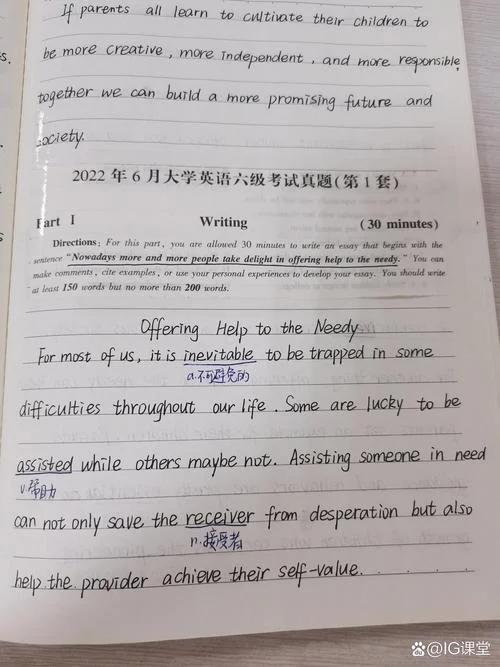 If parents all learn to cultivate their children to
s.
be more creative, more independent, and more responsible,
together we can build a more promising future and
society.
2022 年 6 月大学英语六级考试真题(第 1 套)
Part I Writing (30 minutes)
Directions: For this part, you are allowed 30 minutes to write an essay that begins with the
sentence "Nowadays more and more people take delight in offering help to the needy." You can
make comments, cite examples, or use your personal experiences to develop your essay. You should write
at least 150 words but no more than 200 words.
Offering Help to the Needy
For most of us, it is inevitable to be trapped in some
a.不可避免的
difficulties throughout our life. Some are lucky to be
assisted while others maybe not. Assisting someone in need
v.帮助
can not only save the receiver from desperation but also
n.接受者
help the provider achieve their self-value.
@IG课堂